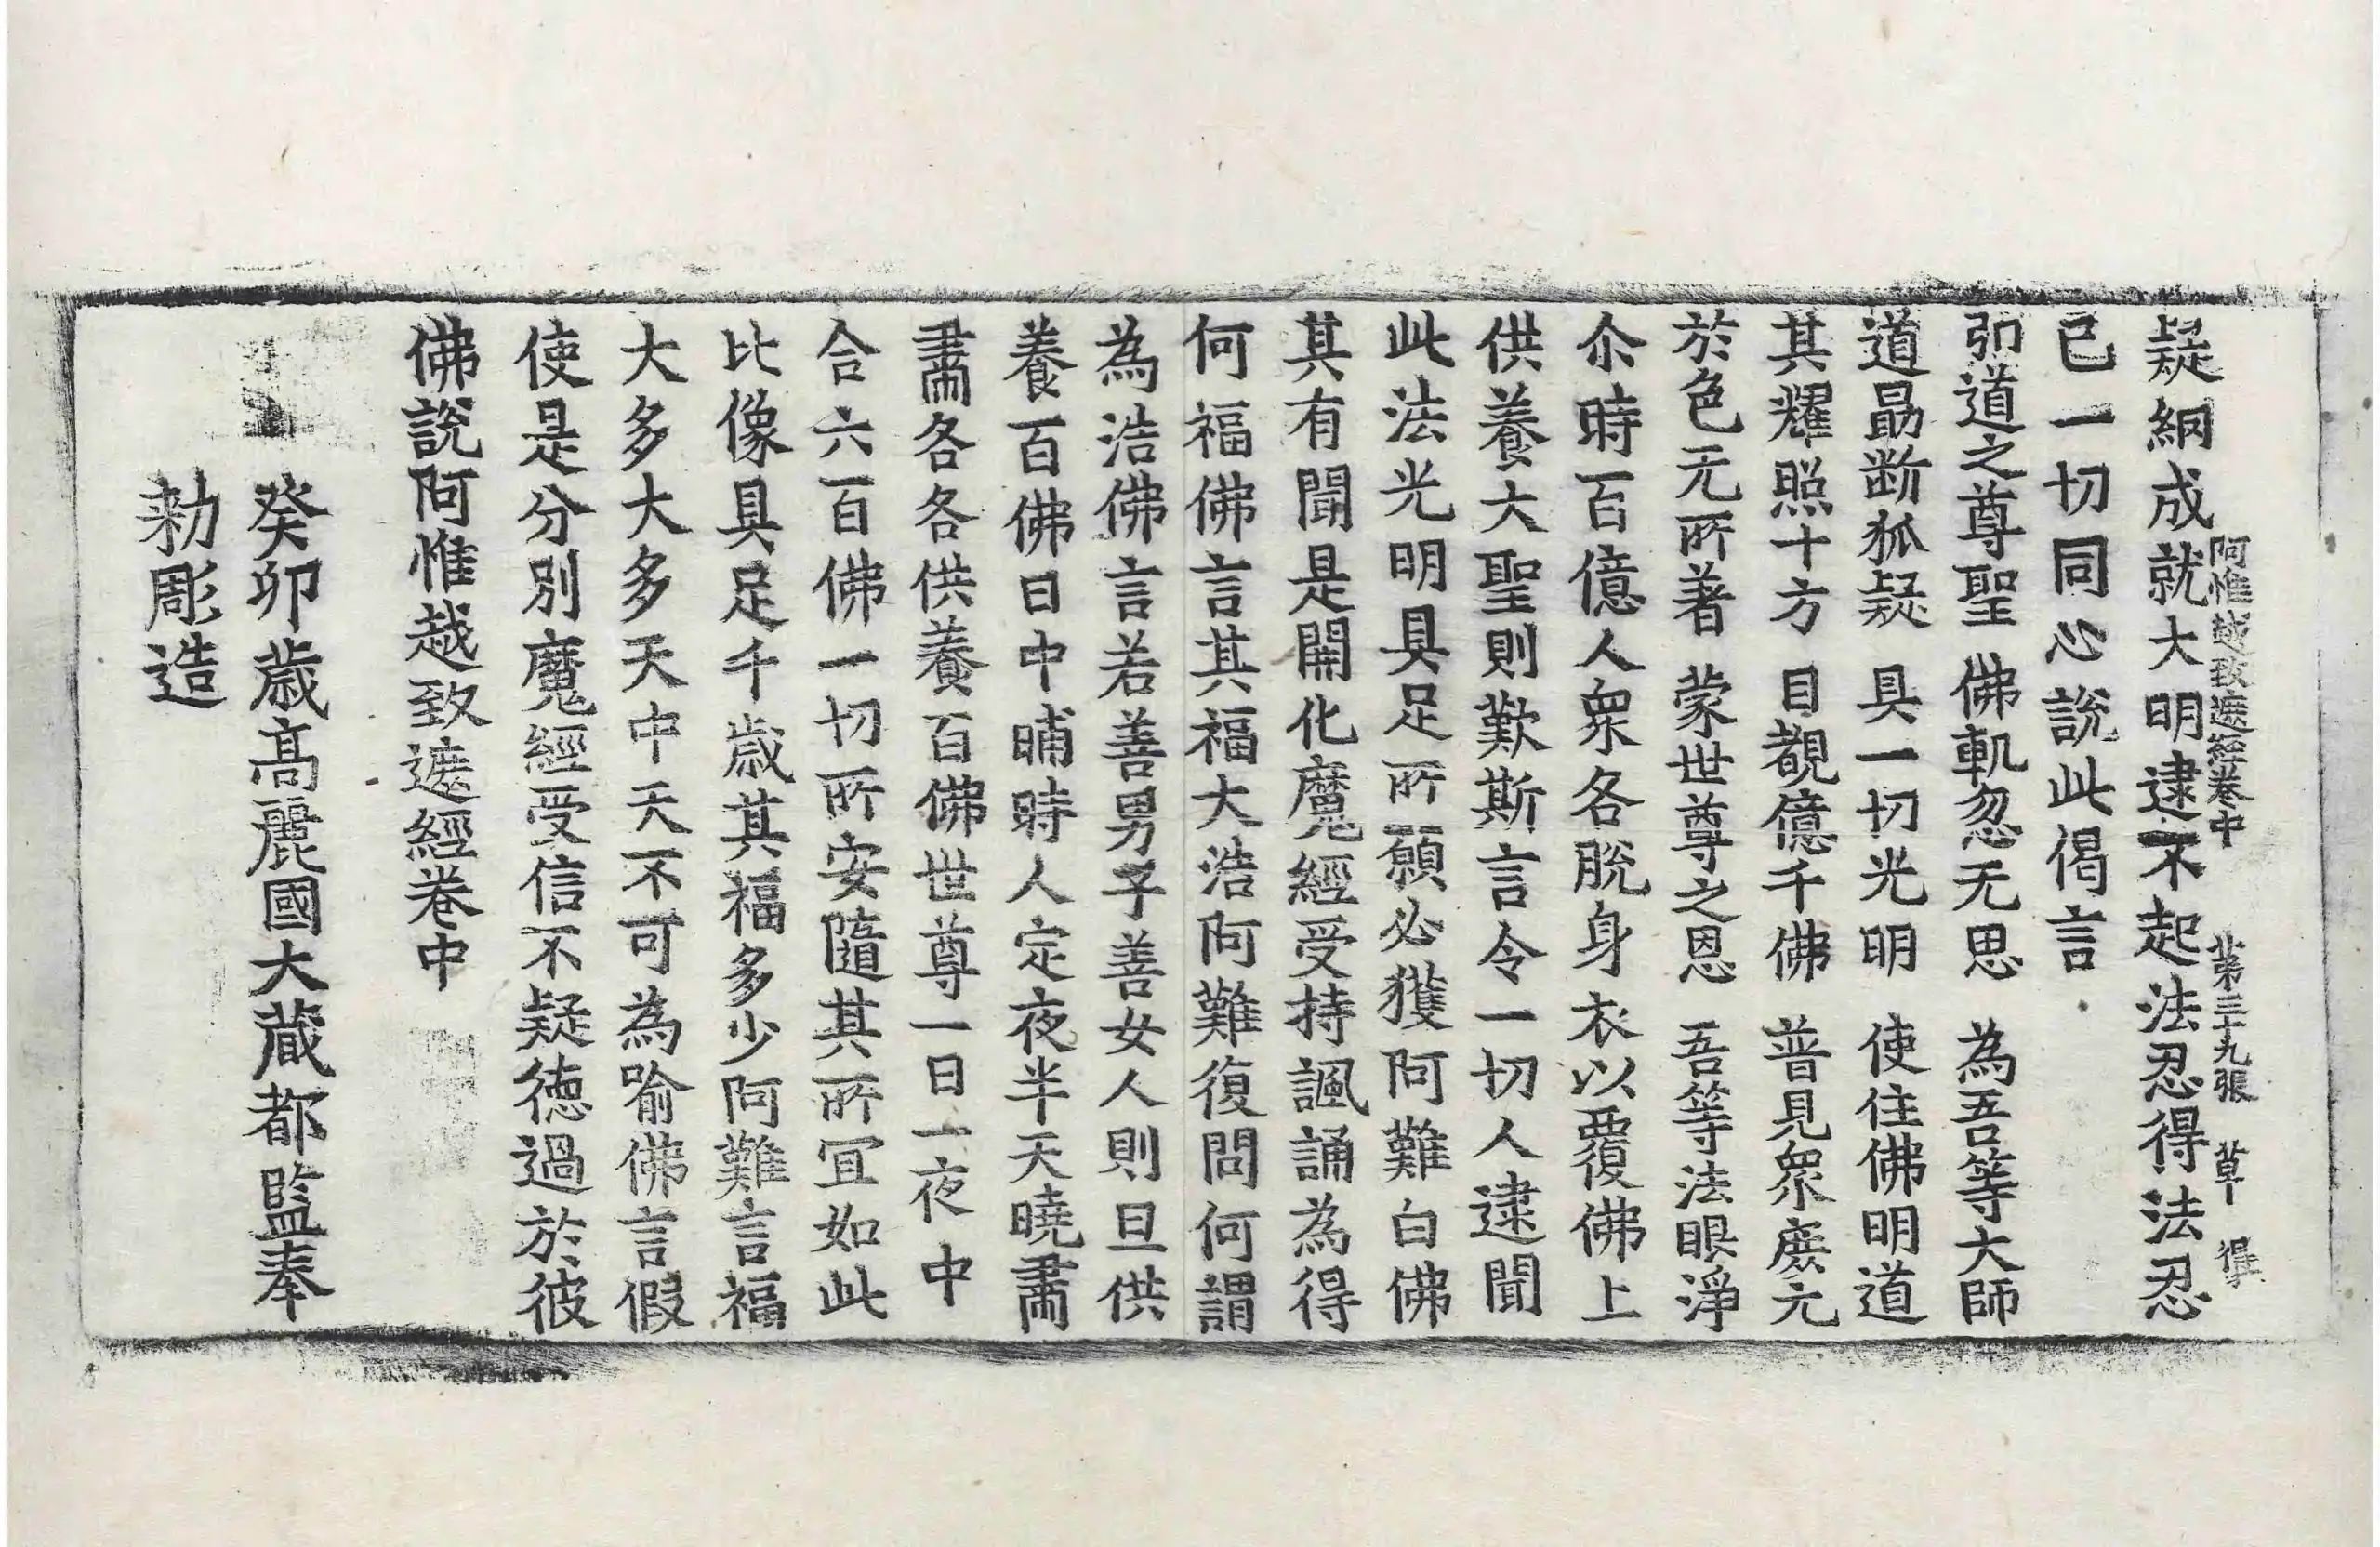 疑網成就大明逮不起法忍得法忍
阿惟越致遮經卷中 第三十九張 草 得
已一切同心說此偈言
引道之尊聖 佛軌忽无思 為吾等大師
道最断狐疑 具一切光明 使住佛明道
其耀照十方 目覩億千佛 普見衆庶元
於色无所著 蒙世尊之恩 吾等法眼淨
尒時百億人衆各脫身衣以覆佛上
供養大聖則歎斯言令一切人逮聞
此法光明具足所願必獲阿難白佛
其有聞是開化魔經受持諷誦為得
何福佛言其福大浩阿難復問何謂
為浩佛言若善男子善女人則旦供
養百佛日中晡時人定夜半天曉肅
肅各各供養百佛世尊一日一夜中
合六百佛一切所安隨其所冝如此
比像具足千歳其福多少阿難言福
大多大多天中天不可為喻佛言假
使是分別魔經受信不疑德過於彼
佛說阿惟越致遮經卷中
癸卯歳高麗國大藏都監奉
勑彫造